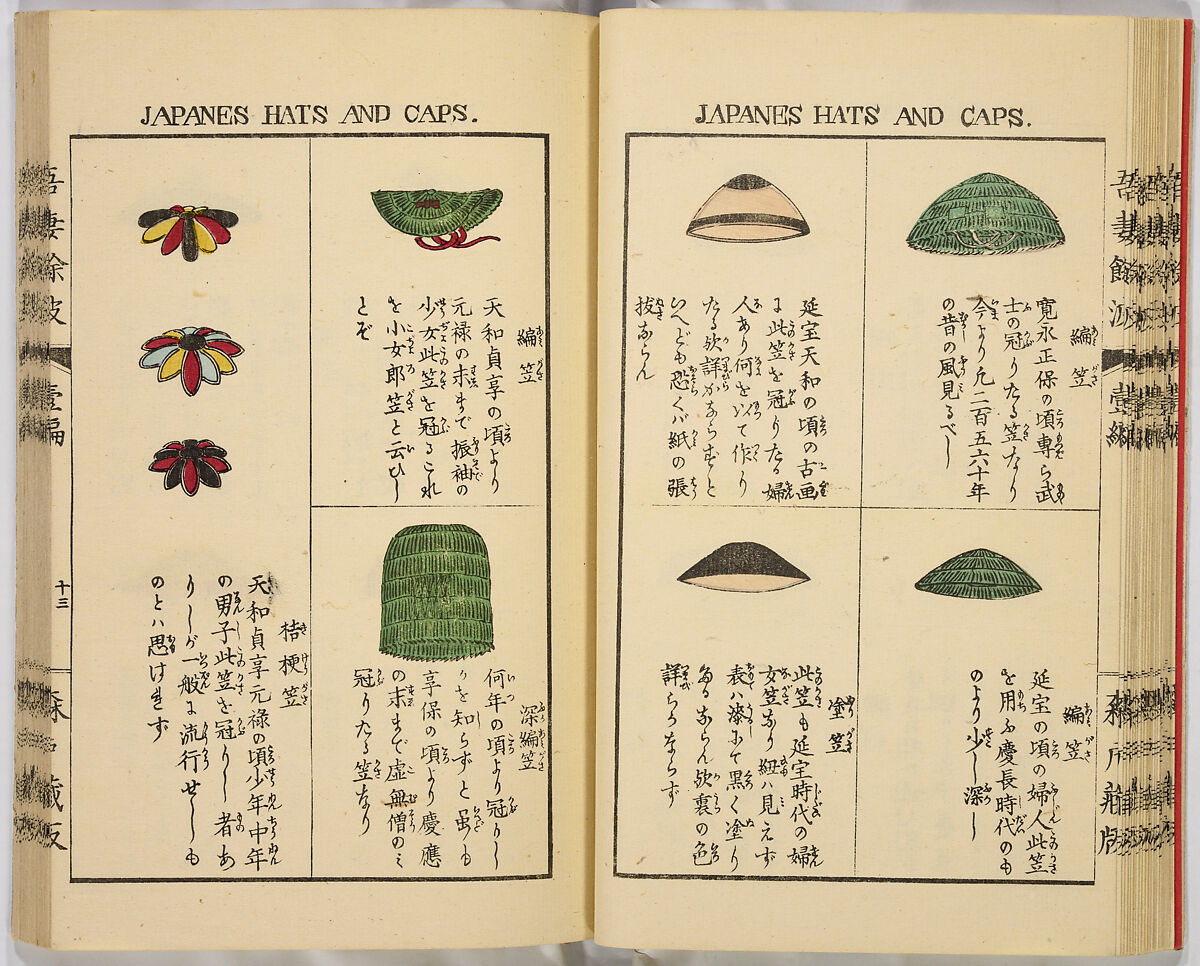 JAPANES HATS AND CAPS.
編笠
寛永正保の頃専ら武
士の冠りたる笠なり
今より凡二百五六十年
の昔の風見るべし
延宝天和の頃の古画
に此笠を冠りたる婦
人あり何を以て作り
たる欤詳かならずと
いへども恐くバ紙の張
抜ならん
編笠
延宝の頃の婦人此笠
を用ふ慶長時代のも
のより少し深し
塗笠
此笠も延宝時代の婦
女笠なり紐ハ見えず
表ハ漆にて黒く塗り
たるならん欤裏の色
詳らかならず
JAPANES HATS AND CAPS.
編笠
天和貞享の頃より
元禄の末まで振袖の
少女此笠を冠るこれ
を小女郎笠と云ひし
とぞ
深編笠
何年の頃より冠りし
かを知らずと虽も
享保の頃より慶應
の末まで虚無僧のミ
冠りたる笠なり
桔梗笠
天和貞享元禄の頃少年中年
の男子此笠を冠りし者あ
りしが一般に流行せしも
のとハ思はれず
十三